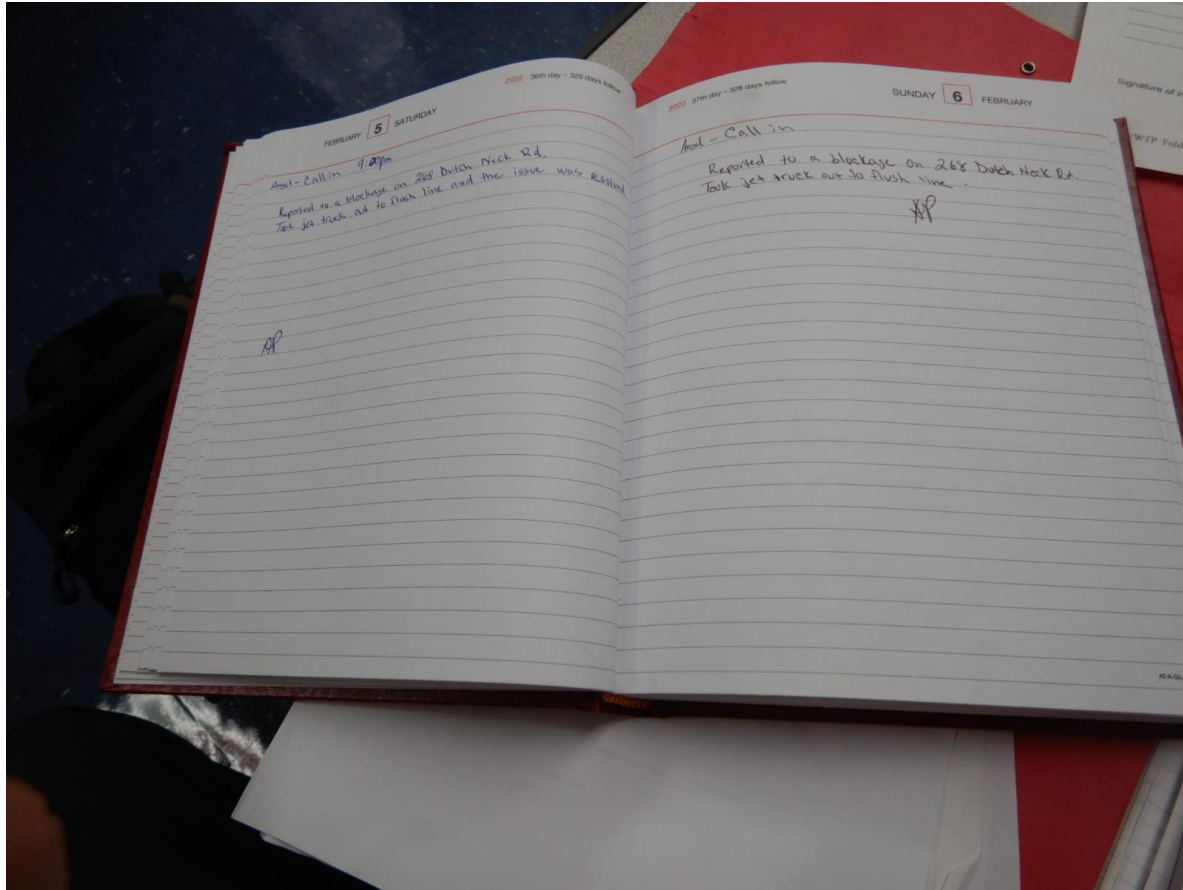 FEBRUARY 5 SATURDAY
2022 36th day – 329 days follow
Call in 9:00pm
Reported to a blockage on 268 Dutch Neck Rd.
Took jet truck out to flush line and the issue was resolved
AP
2022 37th day – 328 days follow
SUNDAY 6 FEBRUARY
Call in
Reported to a blockage on 268 Dutch Neck Rd.
Took jet truck out to flush line.
AP
Signature of
WTP